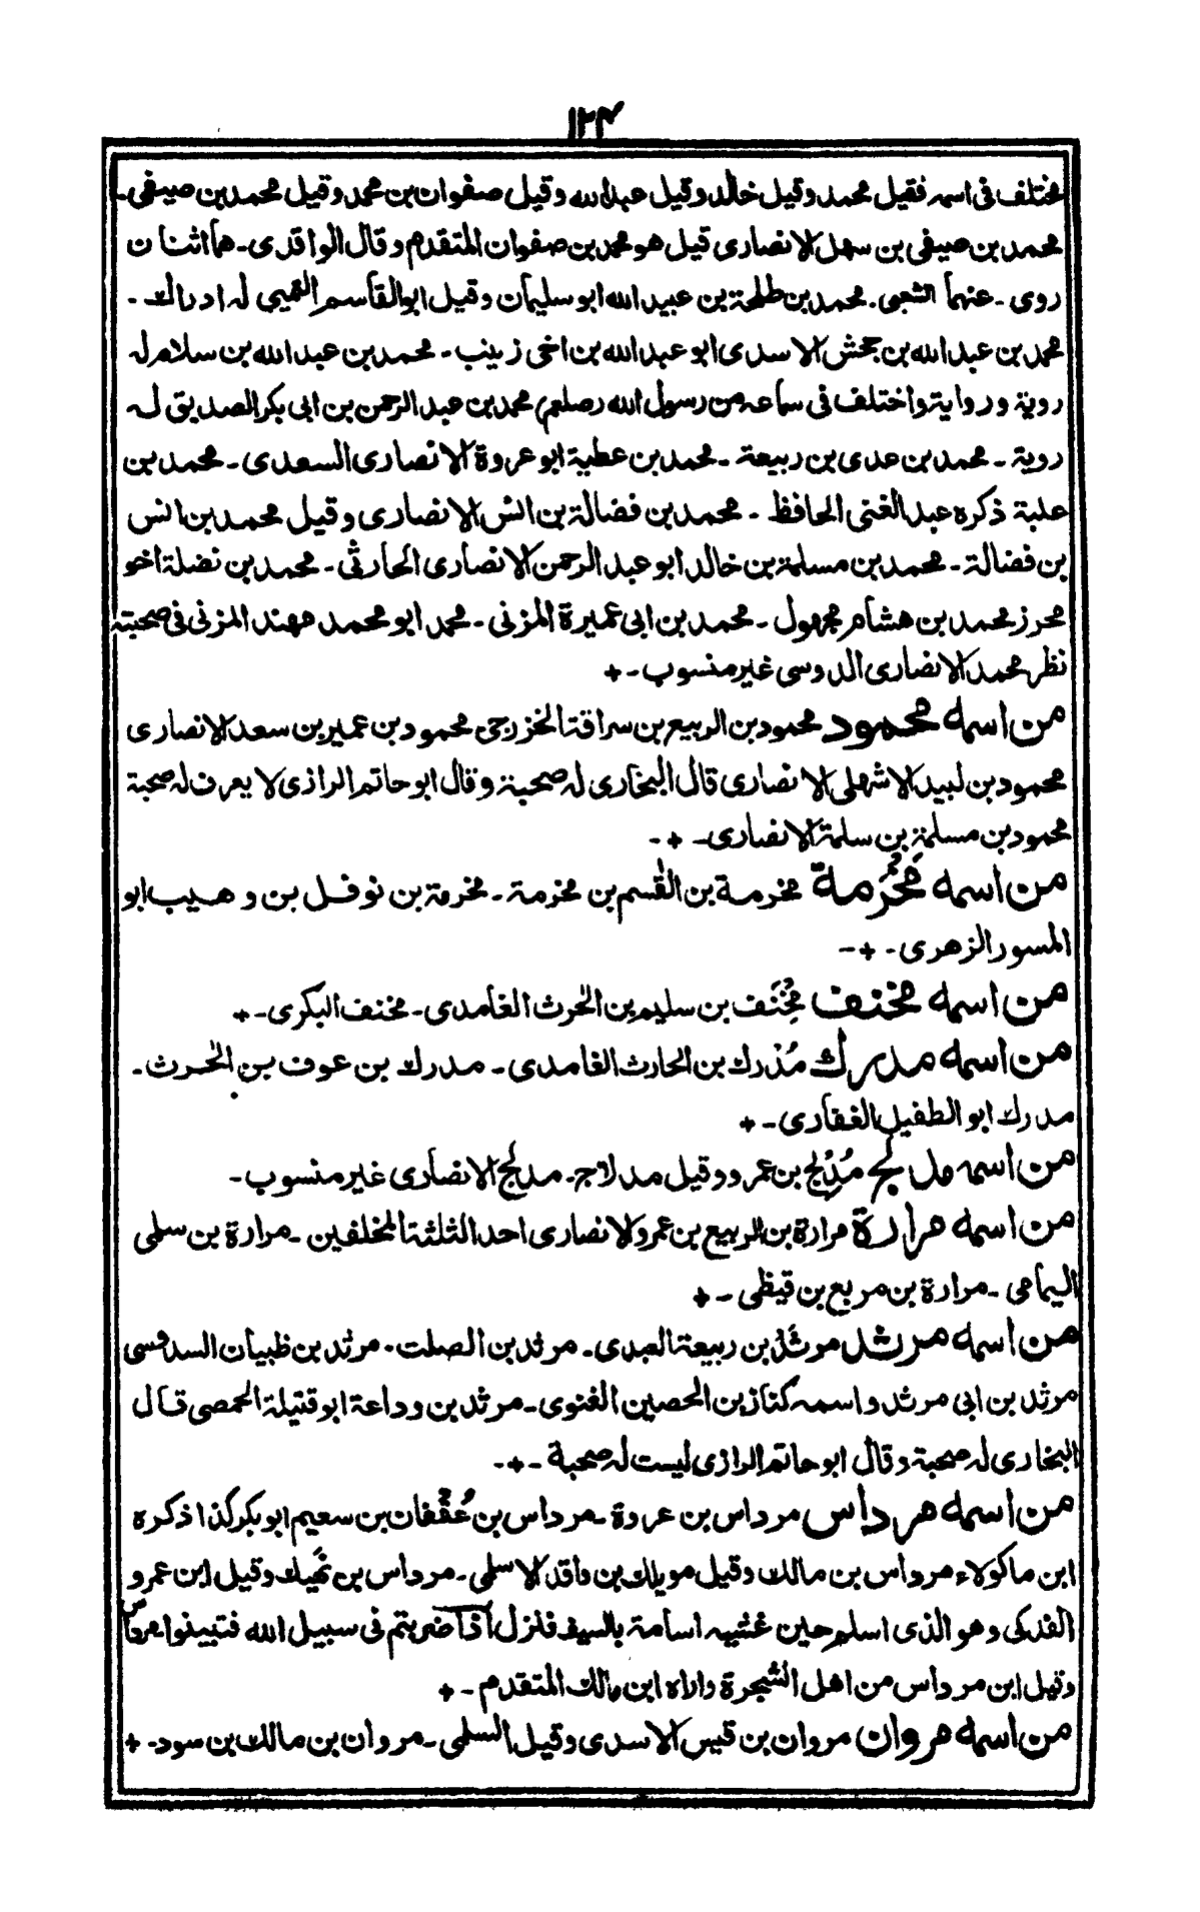 ١٢٤
مختلف فى اسمه فقيل محمد وقيل خالد وقيل عبدالله وقيل صفوان بن محمد وقيل محمد بن صيفى-
محمد بن صيفى بن سهل الانصارى قيل هو محمد بن صفوان المتقدم وقال الواقدى- هما اثنان
روى- عنهما الشعبى- محمد بن طلحة بن عبيد الله ابو سليمان وقيل ابو القاسم التميمى له ادراك-
محمد بن عبد الله بن جحش الاسدى ابو عبد الله بن اخى زينب- محمد بن عبد الله بن سلام له
روية ورواية واختلف فى سماعه من رسول الله صلعم محمد بن عبد الرحمن بن ابى بكر الصديق له
روية- محمد بن عدى بن ربيعة- محمد بن عطية ابو عروة الانصارى السعدى- محمد بن
علبة ذكره عبد الغنى الحافظ- محمد بن فضالة بن انس الانصارى وقيل محمد بن انس
بن فضالة- محمد بن مسلمة بن خالد ابو عبد الرحمن الانصارى الحارثى- محمد بن نضلة اخو
محرز محمد بن هشام مجهول- محمد بن ابى عميرة المزنى- محمد ابو محمد مهند المزنى فى صحبته
نظر محمد الانصارى الدوسى غير منسوب-+
من اسمه محمود محمود بن الربيع بن سراقة الخزرجى محمود بن عمير بن سعد الانصارى
محمود بن لبيد الاشهلى الانصارى قال البخارى له صحبة وقال ابو حاتم الرازى لا يعرف له صحبة
محمود بن مسلمة بن سلمة الانصارى-+-
من اسمه مَخْرَمة مخرمة بن القٰسم بن مخرمة- مخرمة بن نوفل بن وهيب ابو
المسور الزهرى-+-
من اسمه مخنف مِخْنَف بن سليم بن الحٰرث الغامدى- مخنف البكرى-+
من اسمه مدرك مُدْرك بن الحارث الغامدى- مدرك بن عوف بن الحٰرث-
مدرك ابو الطفيل الغفارى-+
من اسمه مدلج مُدْلِج بن عمرو وقيل مدلاج- مدلج الانصارى غير منسوب-
من اسمه مرارة مرارة بن الربيع بن عمرو الانصارى احد الثلثة المخلفين- مرارة بن سلمى
اليمامى- مرارة بن مربع بن قيظى-+
من اسمه مرثد مرثَد بن ربيعة العبدى- مرثد بن الصلت- مرثد بن ظبيان السدوسى
مرثد بن ابى مرثد واسمه كناز بن الحصين الغنوى- مرثد بن وداعة ابو قتيلة الحمصى قال
البخارى له صحبة وقال ابو حاتم الرازى ليست له صحبة-+-
من اسمه مرداس مرداس بن عروة- مرداس بن عُقْفان بن سعيم ابو بكر كذا ذكره
ابن ماكولاء مرداس بن مالك وقيل مويلك بن واقد الاسلمى- مرداس بن نَهيك وقيل ابن عمرو
الفدكى وهو الذى اسلم حين غشيه اسامة بالسيف فنزل اذا ضربتم فى سبيل الله فتبينوا
وقيل ابن مرداس من اهل الشجرة واراه ابن مالك المتقدم-+
من اسمه مروان مروان بن قيس الاسدى وقيل السلمى- مروان بن مالك بن سود-+